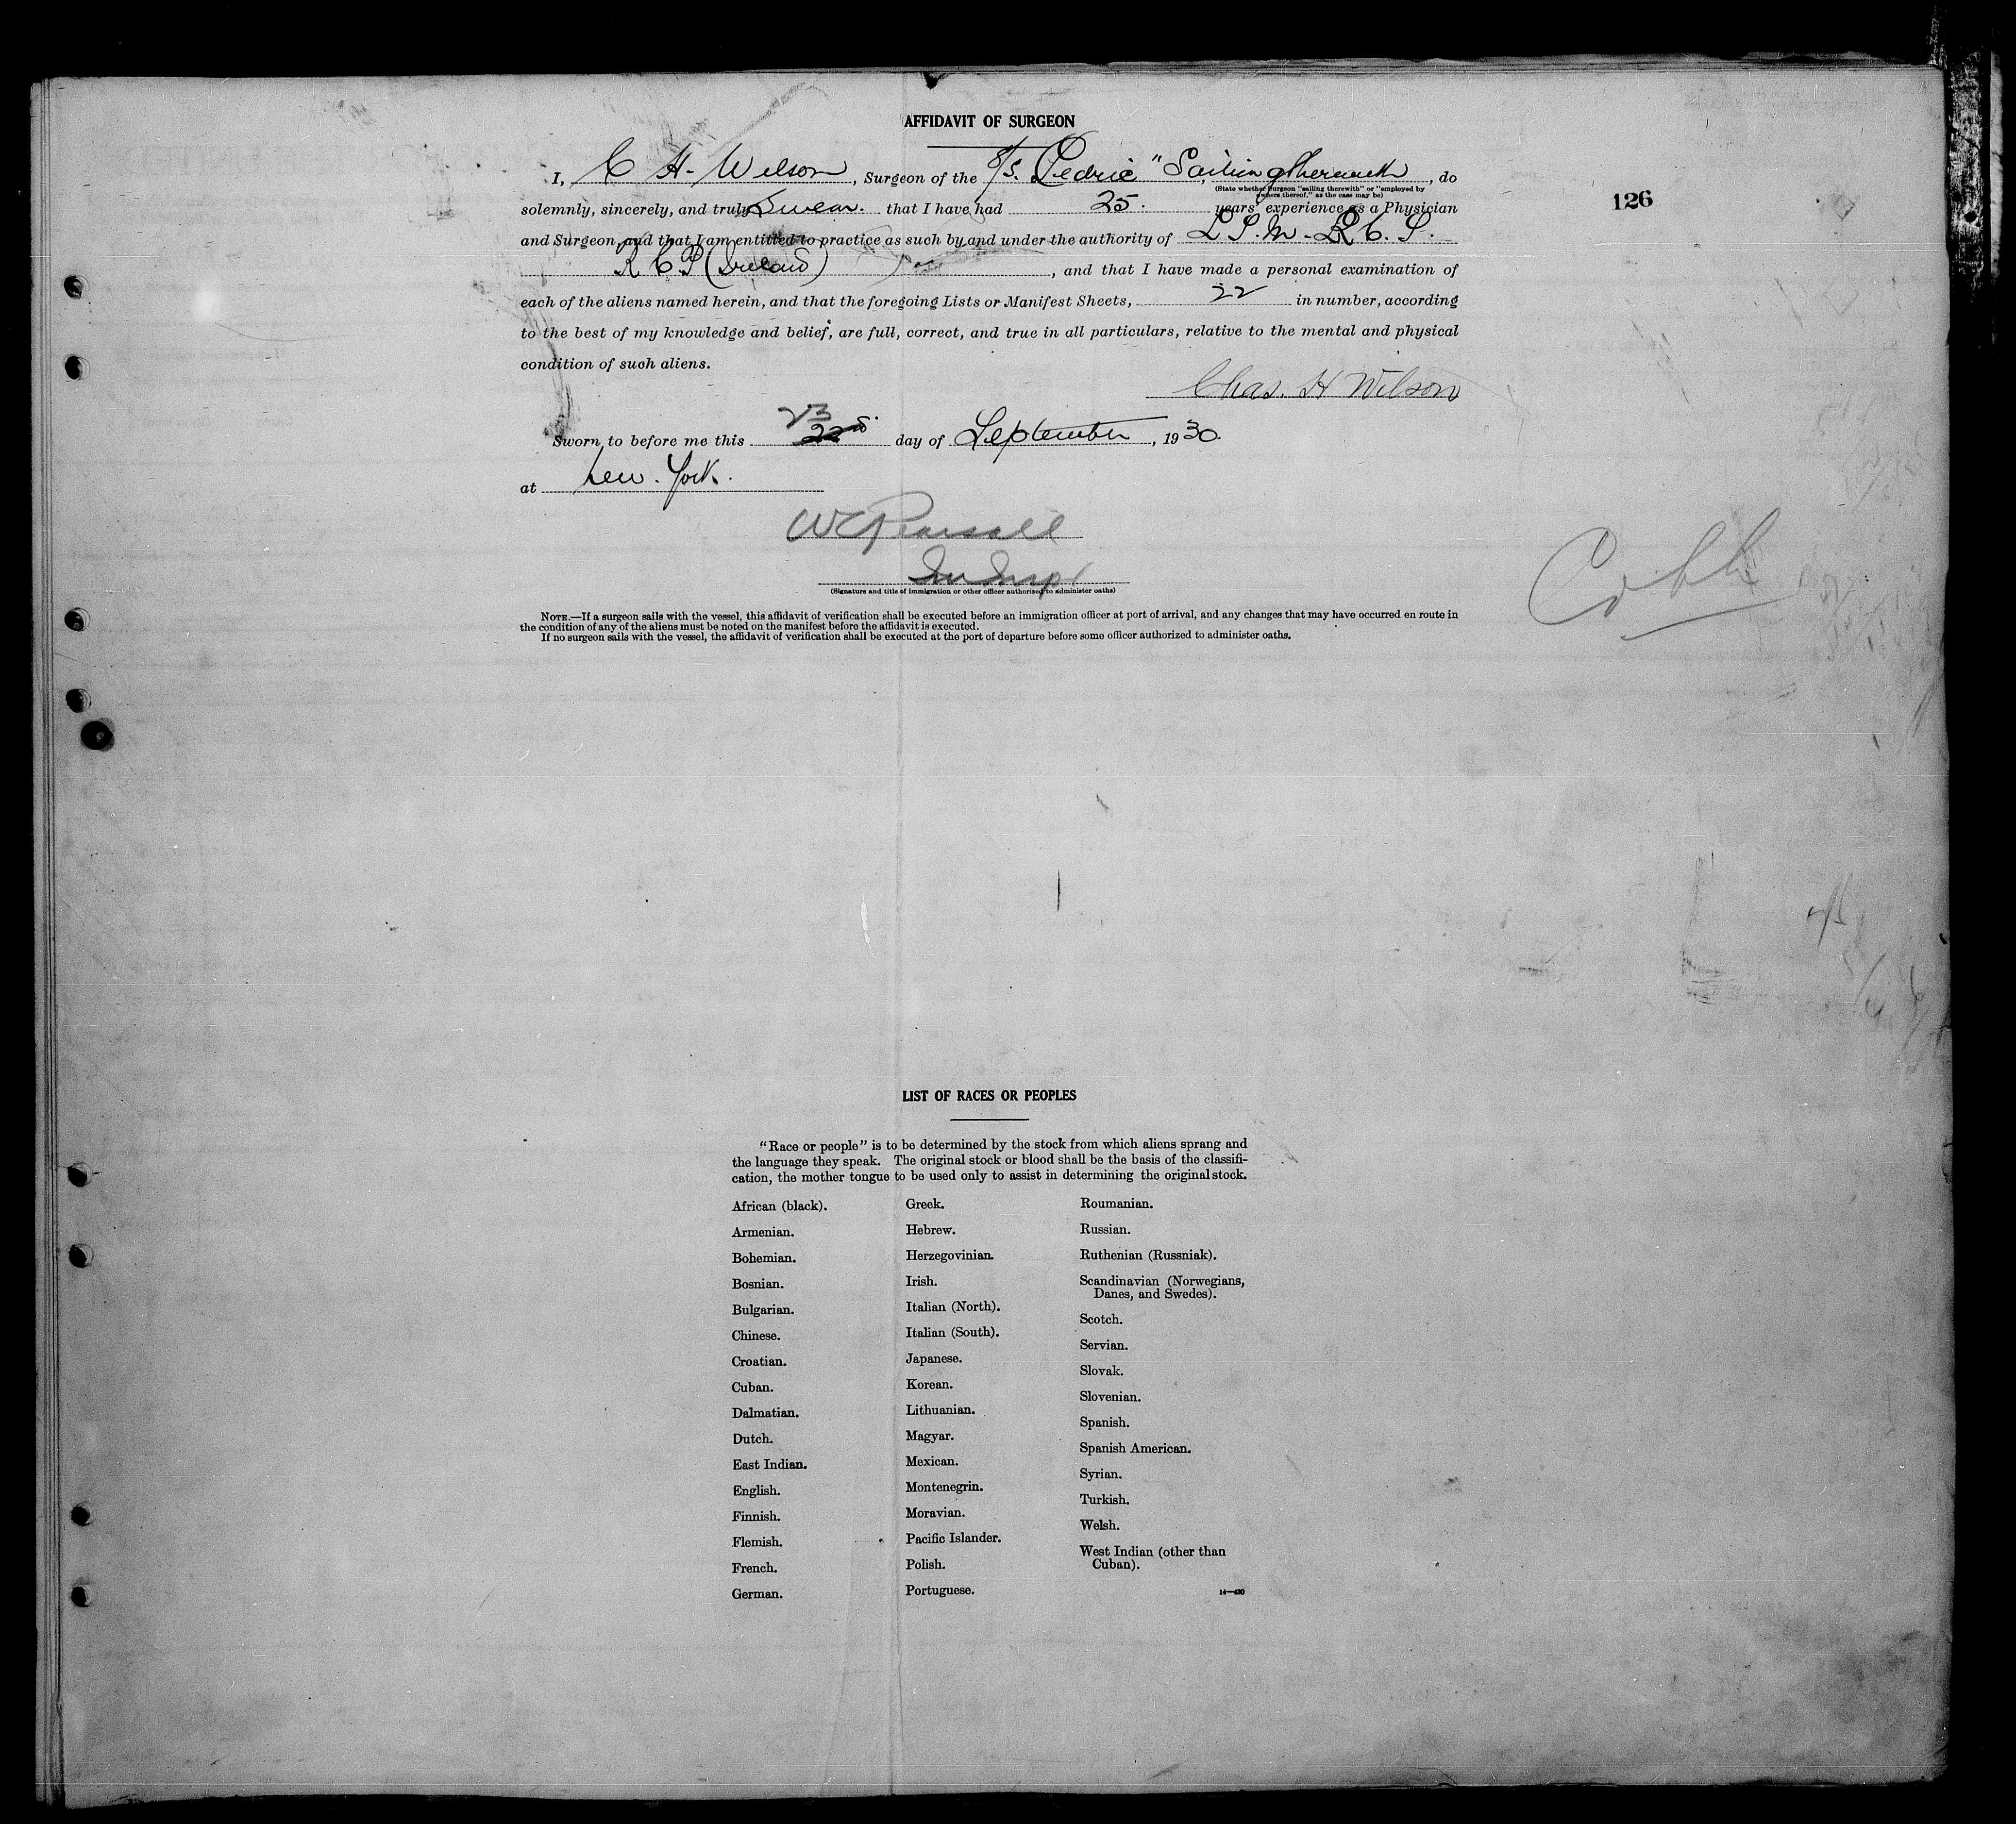 AFFIDAVIT OF SURGEON
I, C H. Wilson, Surgeon of the S/S. Cedric" Sailing therewith, do
(State whether surgeon "sailing therewith" or "employed by
owners thereof," as the case may be)
126
solemnly, sincerely, and truly Swear. that I have had 25. years' experience as a Physician
and Surgeon, and that I am entitled to practice as such by and under the authority of L.S.M. R.C.S.
R C P (Ireland), and that I have made a personal examination of
each of the aliens named herein, and that the foregoing Lists or Manifest Sheets, 22 in number, according
to the best of my knowledge and belief, are full, correct, and true in all particulars, relative to the mental and physical
condition of such aliens.
Chas. H Wilson
23
Sworn to before me this 22nd day of September, 1930.
at New York.
W Pearsall
Im Inspr
(Signature and title of immigration or other officer authorized to administer oaths)
Cobh
NOTE.—If a surgeon sails with the vessel, this affidavit of verification shall be executed before an immigration officer at port of arrival, and any changes that may have occurred en route in
the condition of any of the aliens must be noted on the manifest before the affidavit is executed.
If no surgeon sails with the vessel, the affidavit of verification shall be executed at the port of departure before some officer authorized to administer oaths.
LIST OF RACES OR PEOPLES
"Race or people" is to be determined by the stock from which aliens sprang and
the language they speak. The original stock or blood shall be the basis of the classifi-
cation, the mother tongue to be used only to assist in determining the original stock.
African (black).
Armenian.
Bohemian.
Bosnian.
Bulgarian.
Chinese.
Croatian.
Cuban.
Dalmatian.
Dutch.
East Indian.
English.
Finnish.
Flemish.
French.
German.
Greek.
Hebrew.
Herzegovinian.
Irish.
Italian (North).
Italian (South).
Japanese.
Korean.
Lithuanian.
Magyar.
Mexican.
Montenegrin.
Moravian.
Pacific Islander.
Polish.
Portuguese.
Roumanian.
Russian.
Ruthenian (Russniak).
Scandinavian (Norwegians,
Danes, and Swedes).
Scotch.
Servian.
Slovak.
Slovenian.
Spanish.
Spanish American.
Syrian.
Turkish.
Welsh.
West Indian (other than
Cuban).
14—430